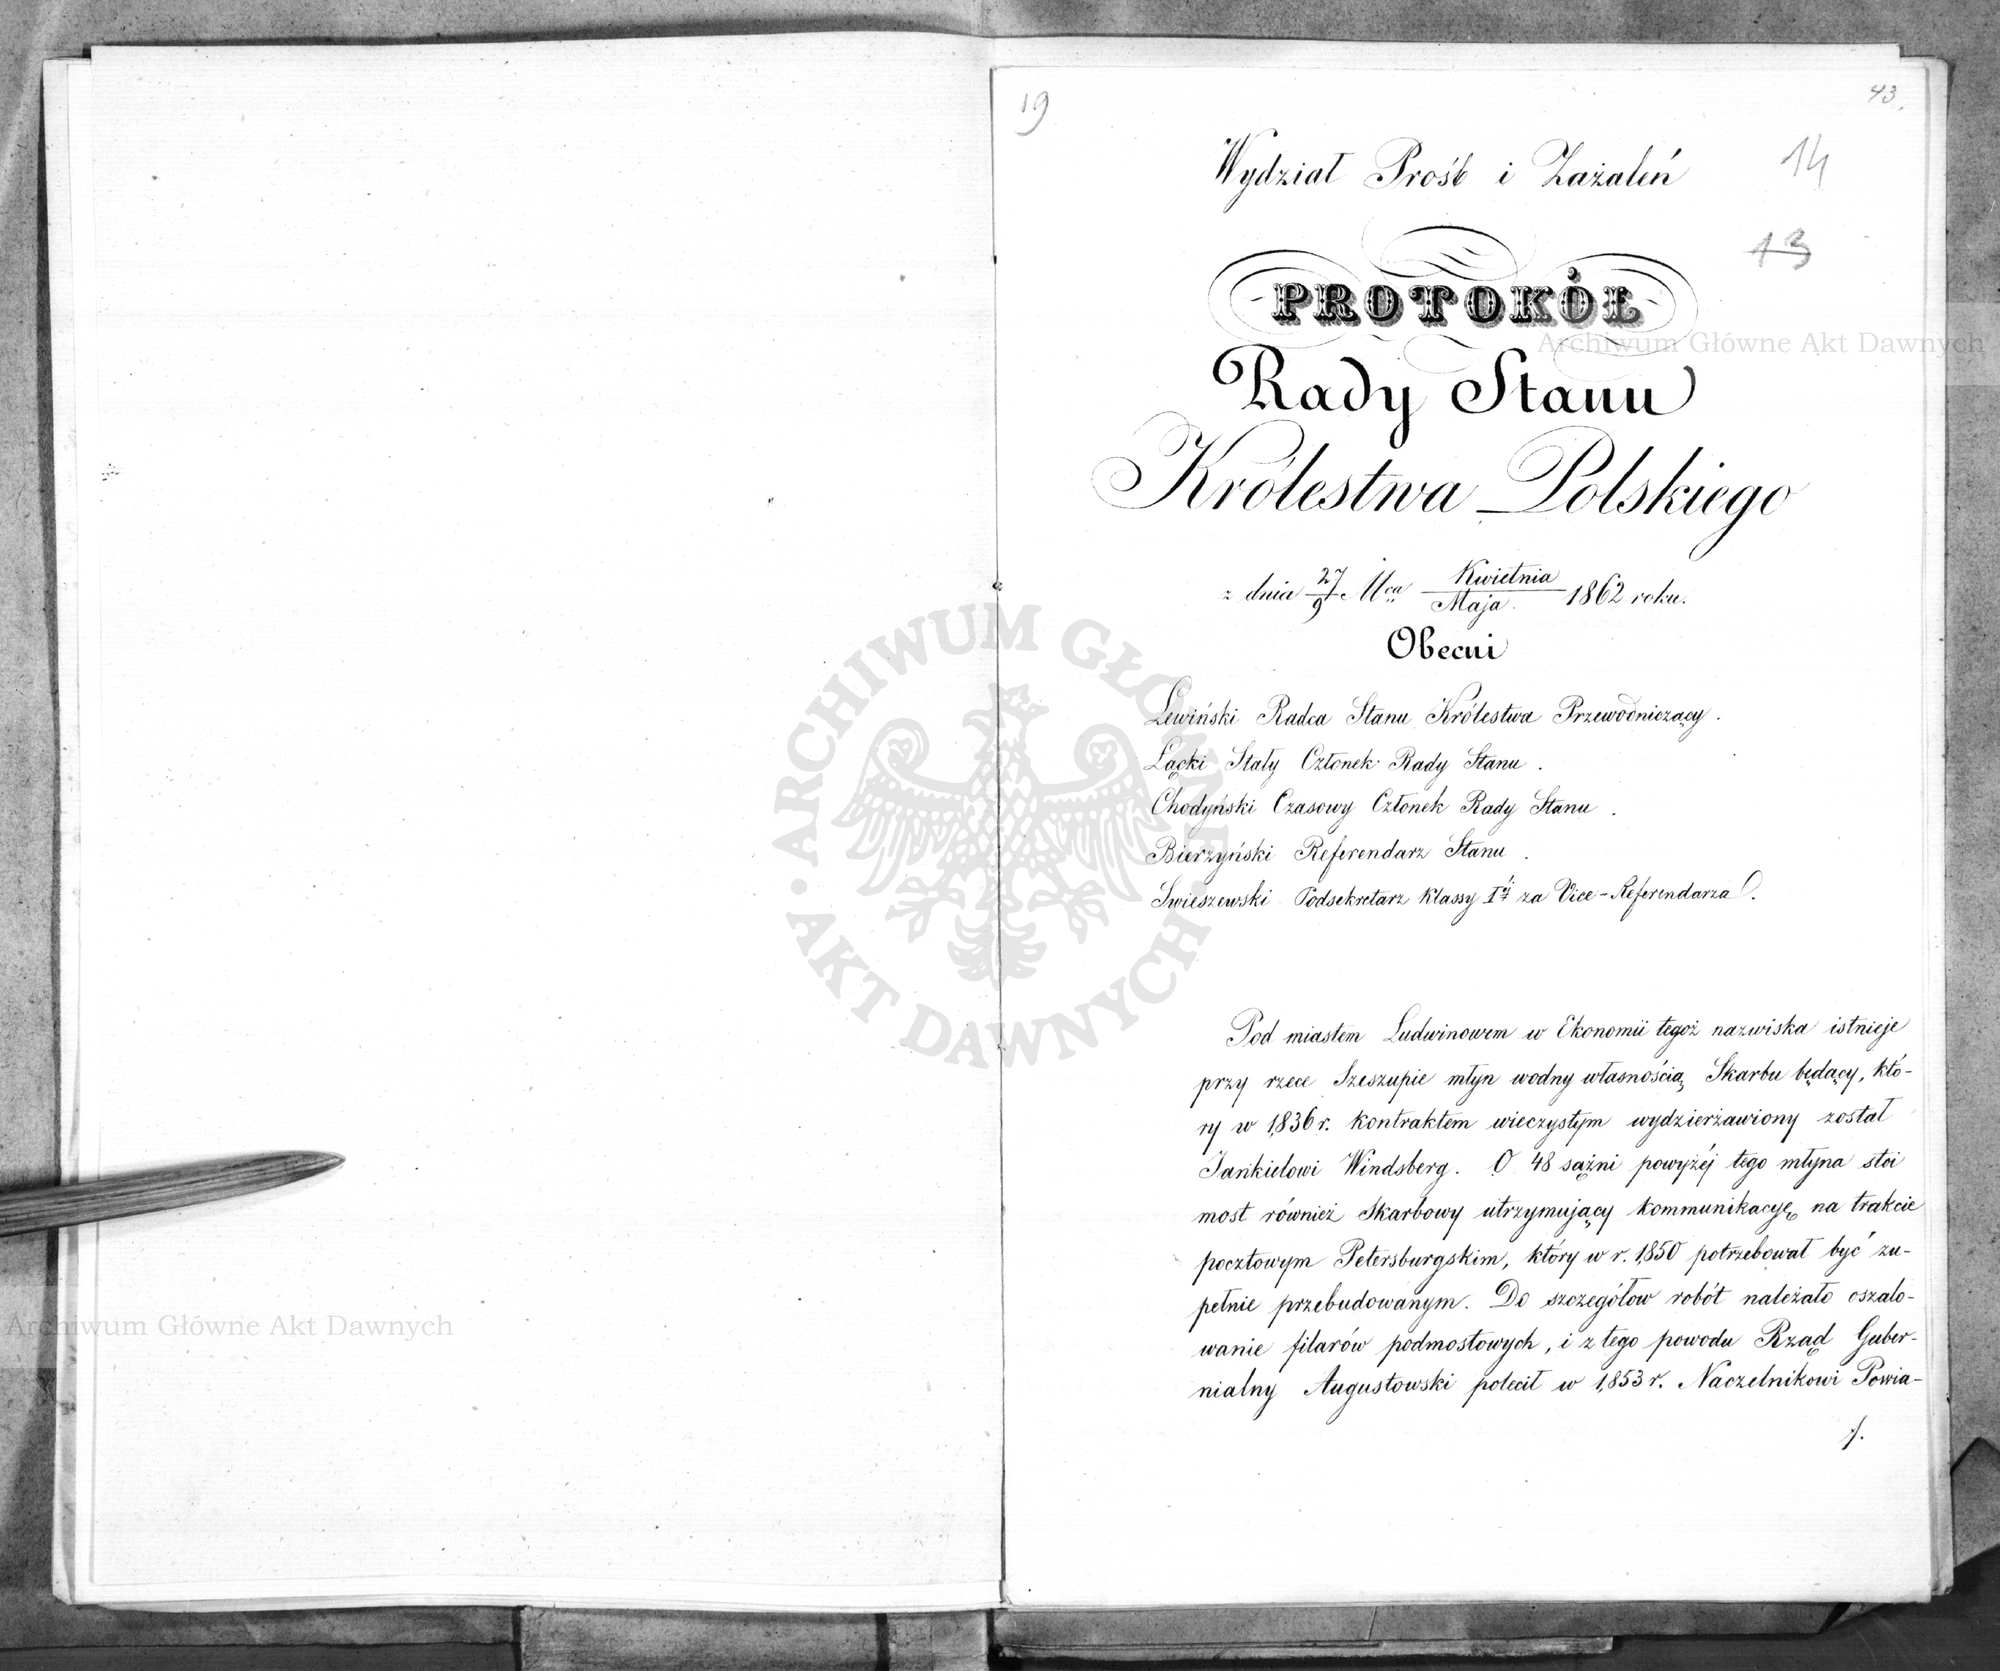 19
43.
Wydział Prośb i Zażaleń
14
13
PROTOKÓŁ
Rady Stanu
Królestwa Polskiego
z dnia 27/9 Mca Kwietnia/Maja 1862 roku.
Obecni
Lewiński Radca Stanu Królestwa Przewodniczący.
Łącki Stały Członek Rady Stanu.
Chodyński Czasowy Członek Rady Stanu.
Bierzyński Referendarz Stanu.
Swieszewski Podsekretarz klassy Iéj za Vice-Referendarza.
Pod miastem Ludwinowem w Ekonomii tegoż nazwiska istnieje
przy rzece Szeszupie młyn wodny własnością Skarbu będący, któ-
ry w 1836 r. kontraktem wieczystym wydzierżawiony został
Jankielowi Windsberg. O 48 sążni powyżéj tego młyna stoi
most również Skarbowy utrzymujący kommunikacyę na trakcie
pocztowym Petersburgskim, który w r. 1850 potrzebował być zu-
pełnie przebudowanym. Do szczegółow robót należało oszalo-
wanie filarów podmostowych, i z tego powodu Rząd Guber-
nialny Augustowski polecił w 1853 r. Naczelnikowi Powia-
ARCHIWUM GŁÓWNE AKT DAWNYCH
Archiwum Główne Akt Dawnych
Archiwum Główne Akt Dawnych